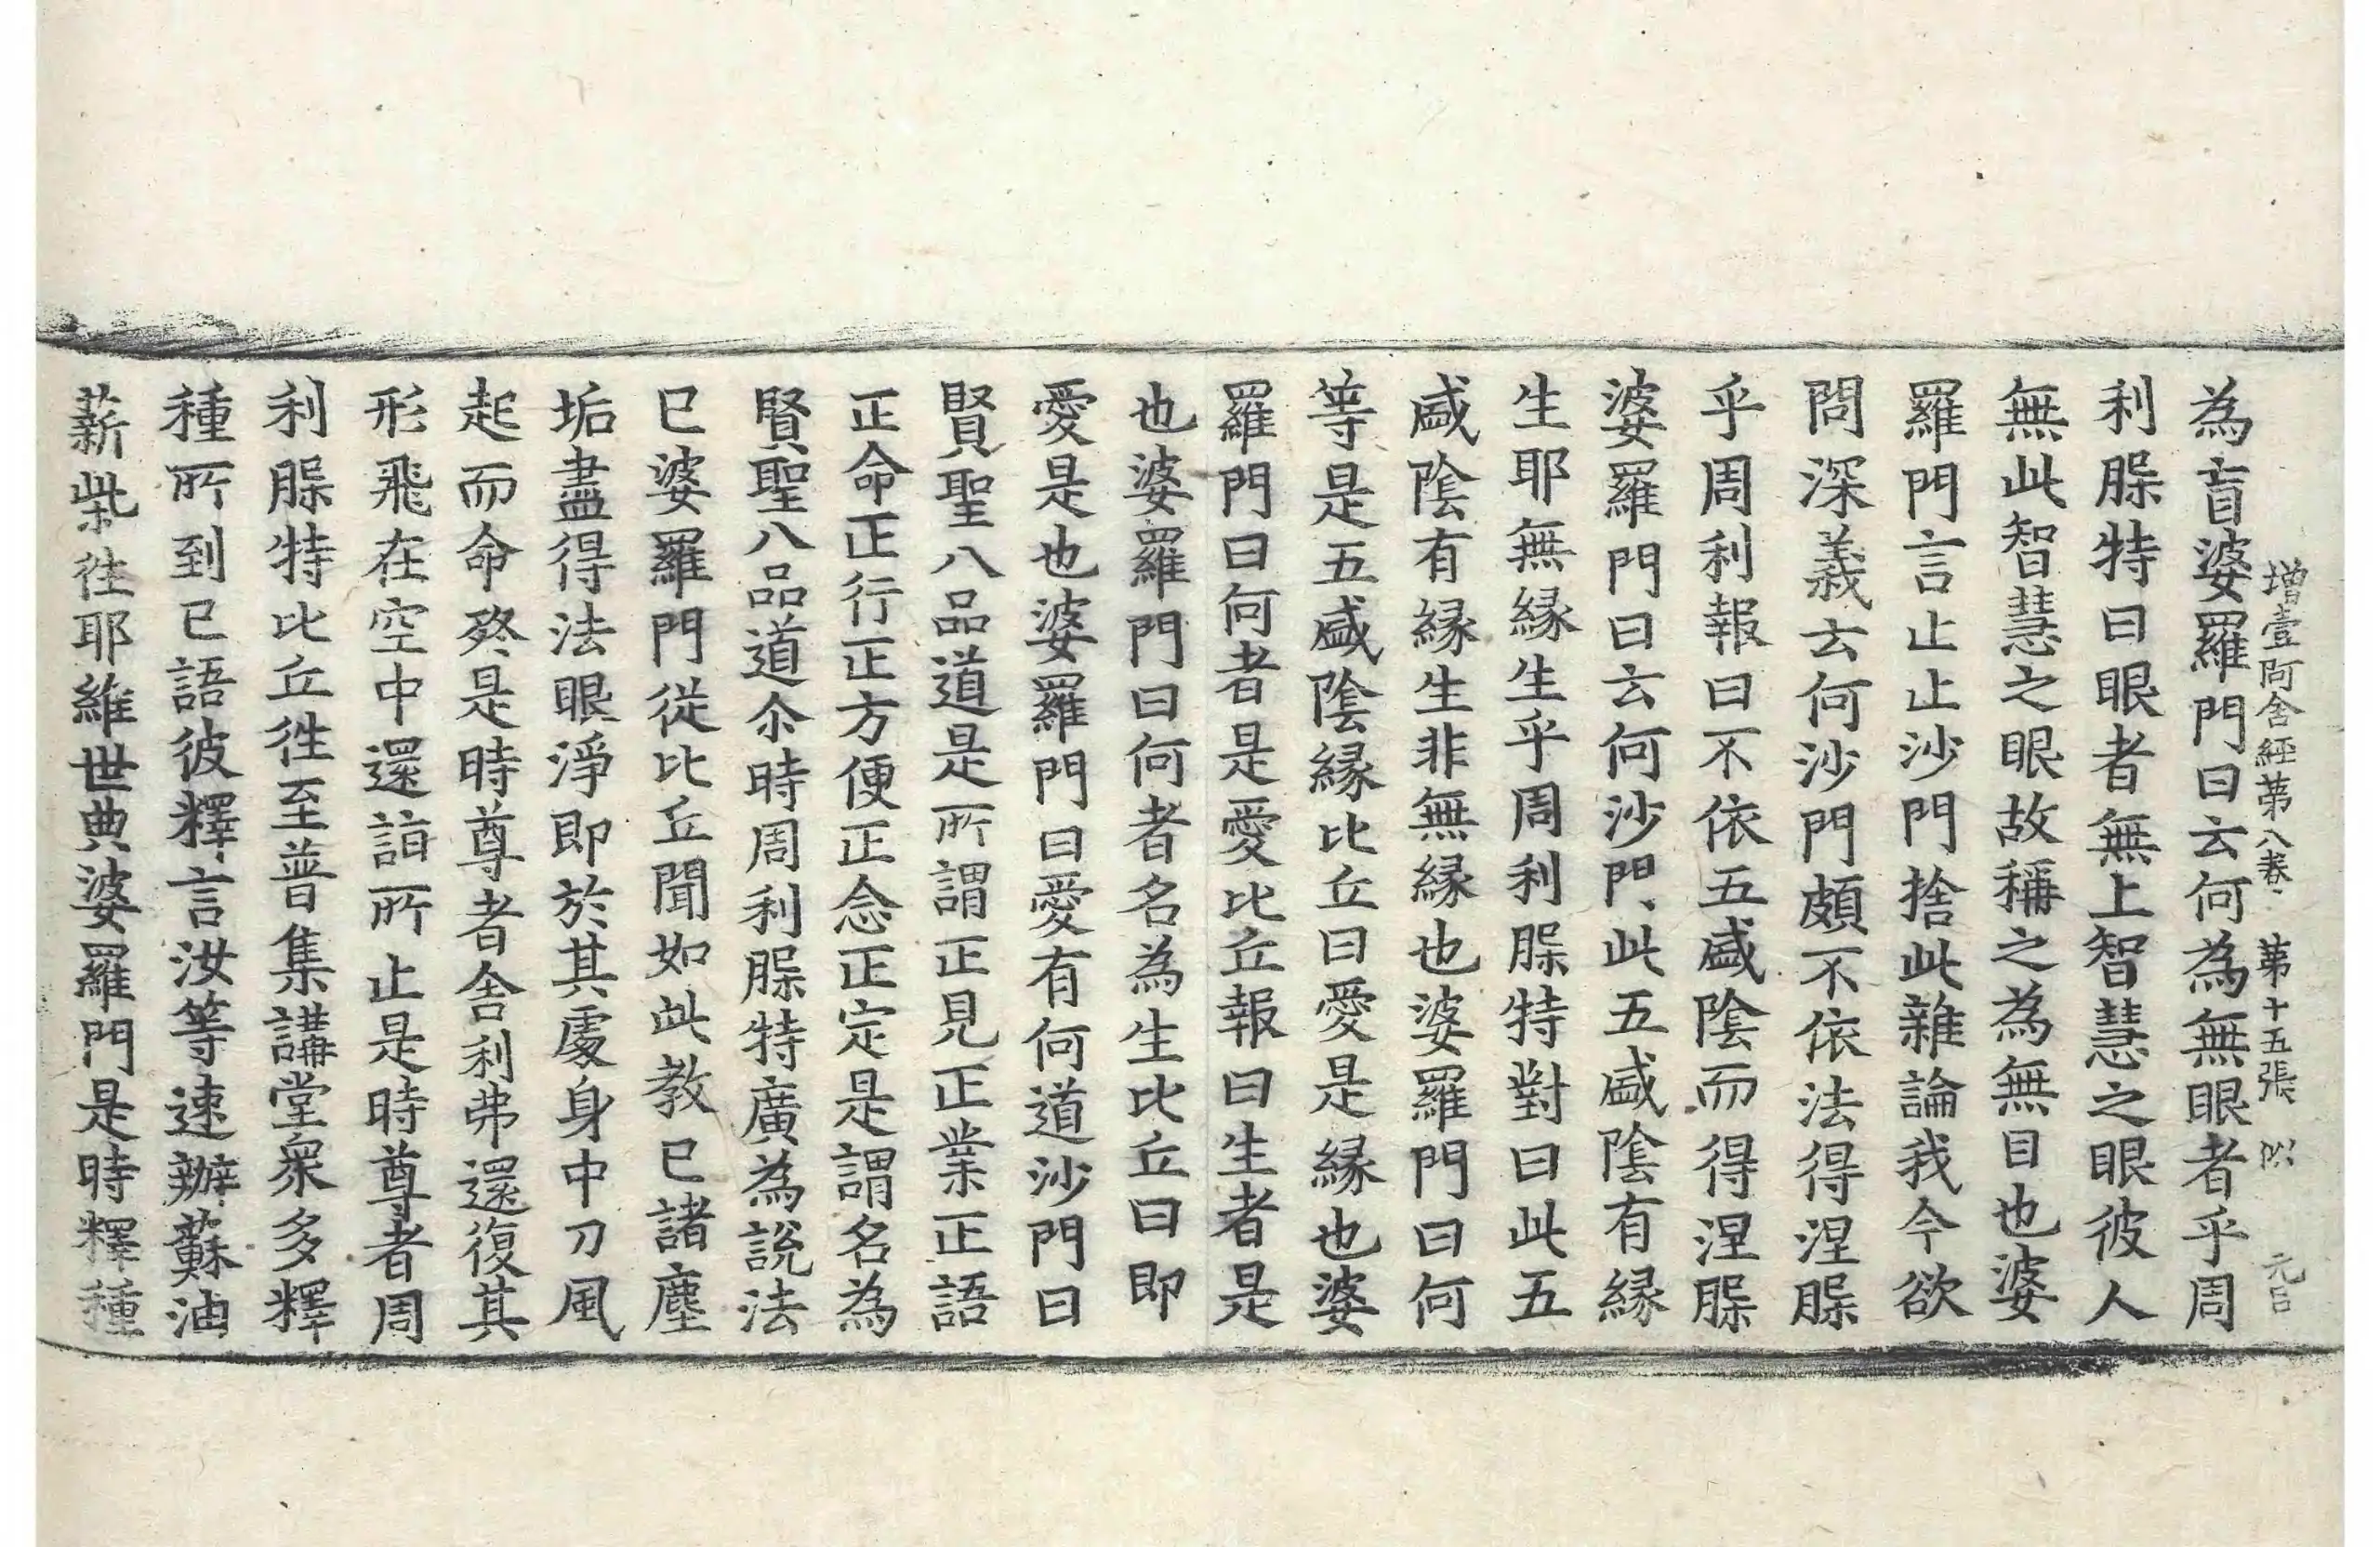 增壹阿含經第八卷 第十五張 似 元呂
為盲婆羅門曰云何為無眼者乎周
利䏶特曰眼者無上智慧之眼彼人
無此智慧之眼故稱之為無目也婆
羅門言止止沙門捨此雜論我今欲
問深義云何沙門頗不依法得涅䏶
乎周利報曰不依五盛陰而得涅䏶
婆羅門曰云何沙門此五盛陰有緣
生耶無緣生乎周利䏶特對曰此五
盛陰有緣生非無緣也婆羅門曰何
等是五盛陰緣比丘曰愛是緣也婆
羅門曰何者是愛比丘報曰生者是
也婆羅門曰何者名為生比丘曰即
愛是也婆羅門曰愛有何道沙門曰
賢聖八品道是所謂正見正業正語
正命正行正方便正念正定是謂名為
賢聖八品道尒時周利䏶特廣為說法
已婆羅門從比丘聞如此教已諸塵
垢盡得法眼淨即於其處身中刀風
起而命終是時尊者舍利弗還復其
形飛在空中還詣所止是時尊者周
利䏶特比丘徃至普集講堂衆多釋
種所到已語彼釋言汝等速辦蘇油
薪柴徃耶維世典婆羅門是時釋種